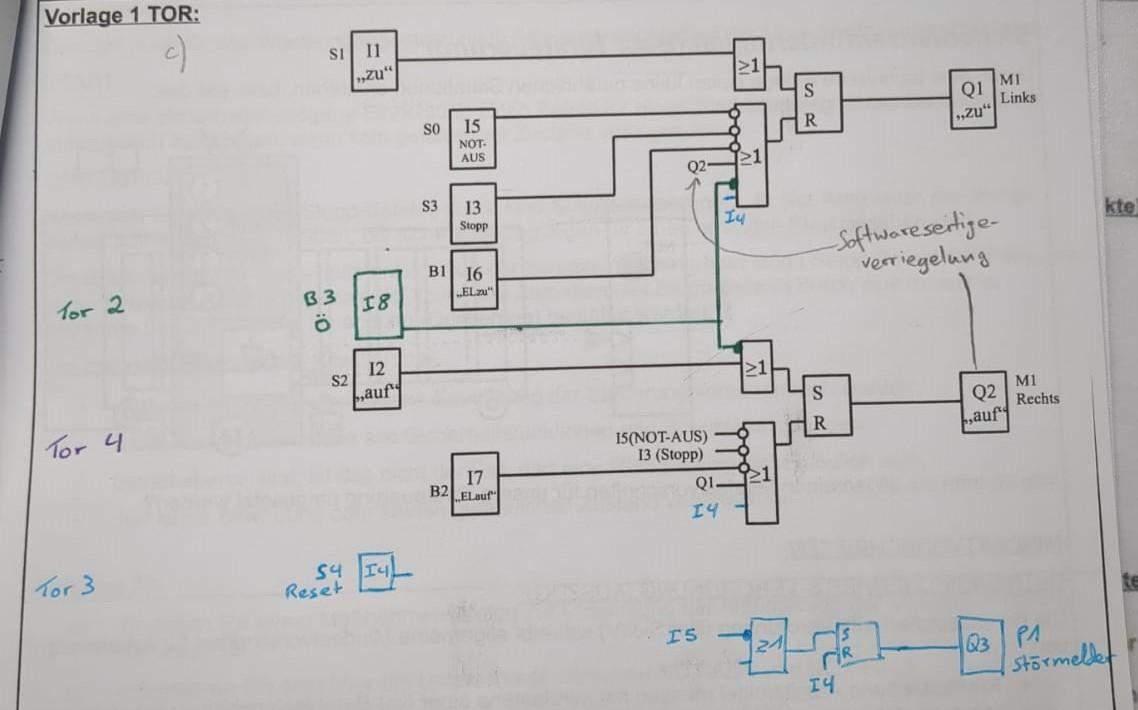 Vorlage 1 TOR:
c)
S1 I1 „zu“
≥1
S R
Q1 „zu“
M1 Links
S0 I5 NOT-AUS
Q2
≥1
S3 I3 Stopp
I4
Softwareseitige-
verriegelung
B1 I6 „ELzu“
Tor 2
B3 Ö I8
S2 I2 „auf“
≥1
S R
Q2 „auf“
M1 Rechts
Tor 4
I5(NOT-AUS)
I3 (Stopp)
B2 I7 „ELauf“
Q1
≥1
I4
Tor 3
S4 Reset I4
I5
≥1
S R
I4
Q3
P1
Störmelder
kte
te